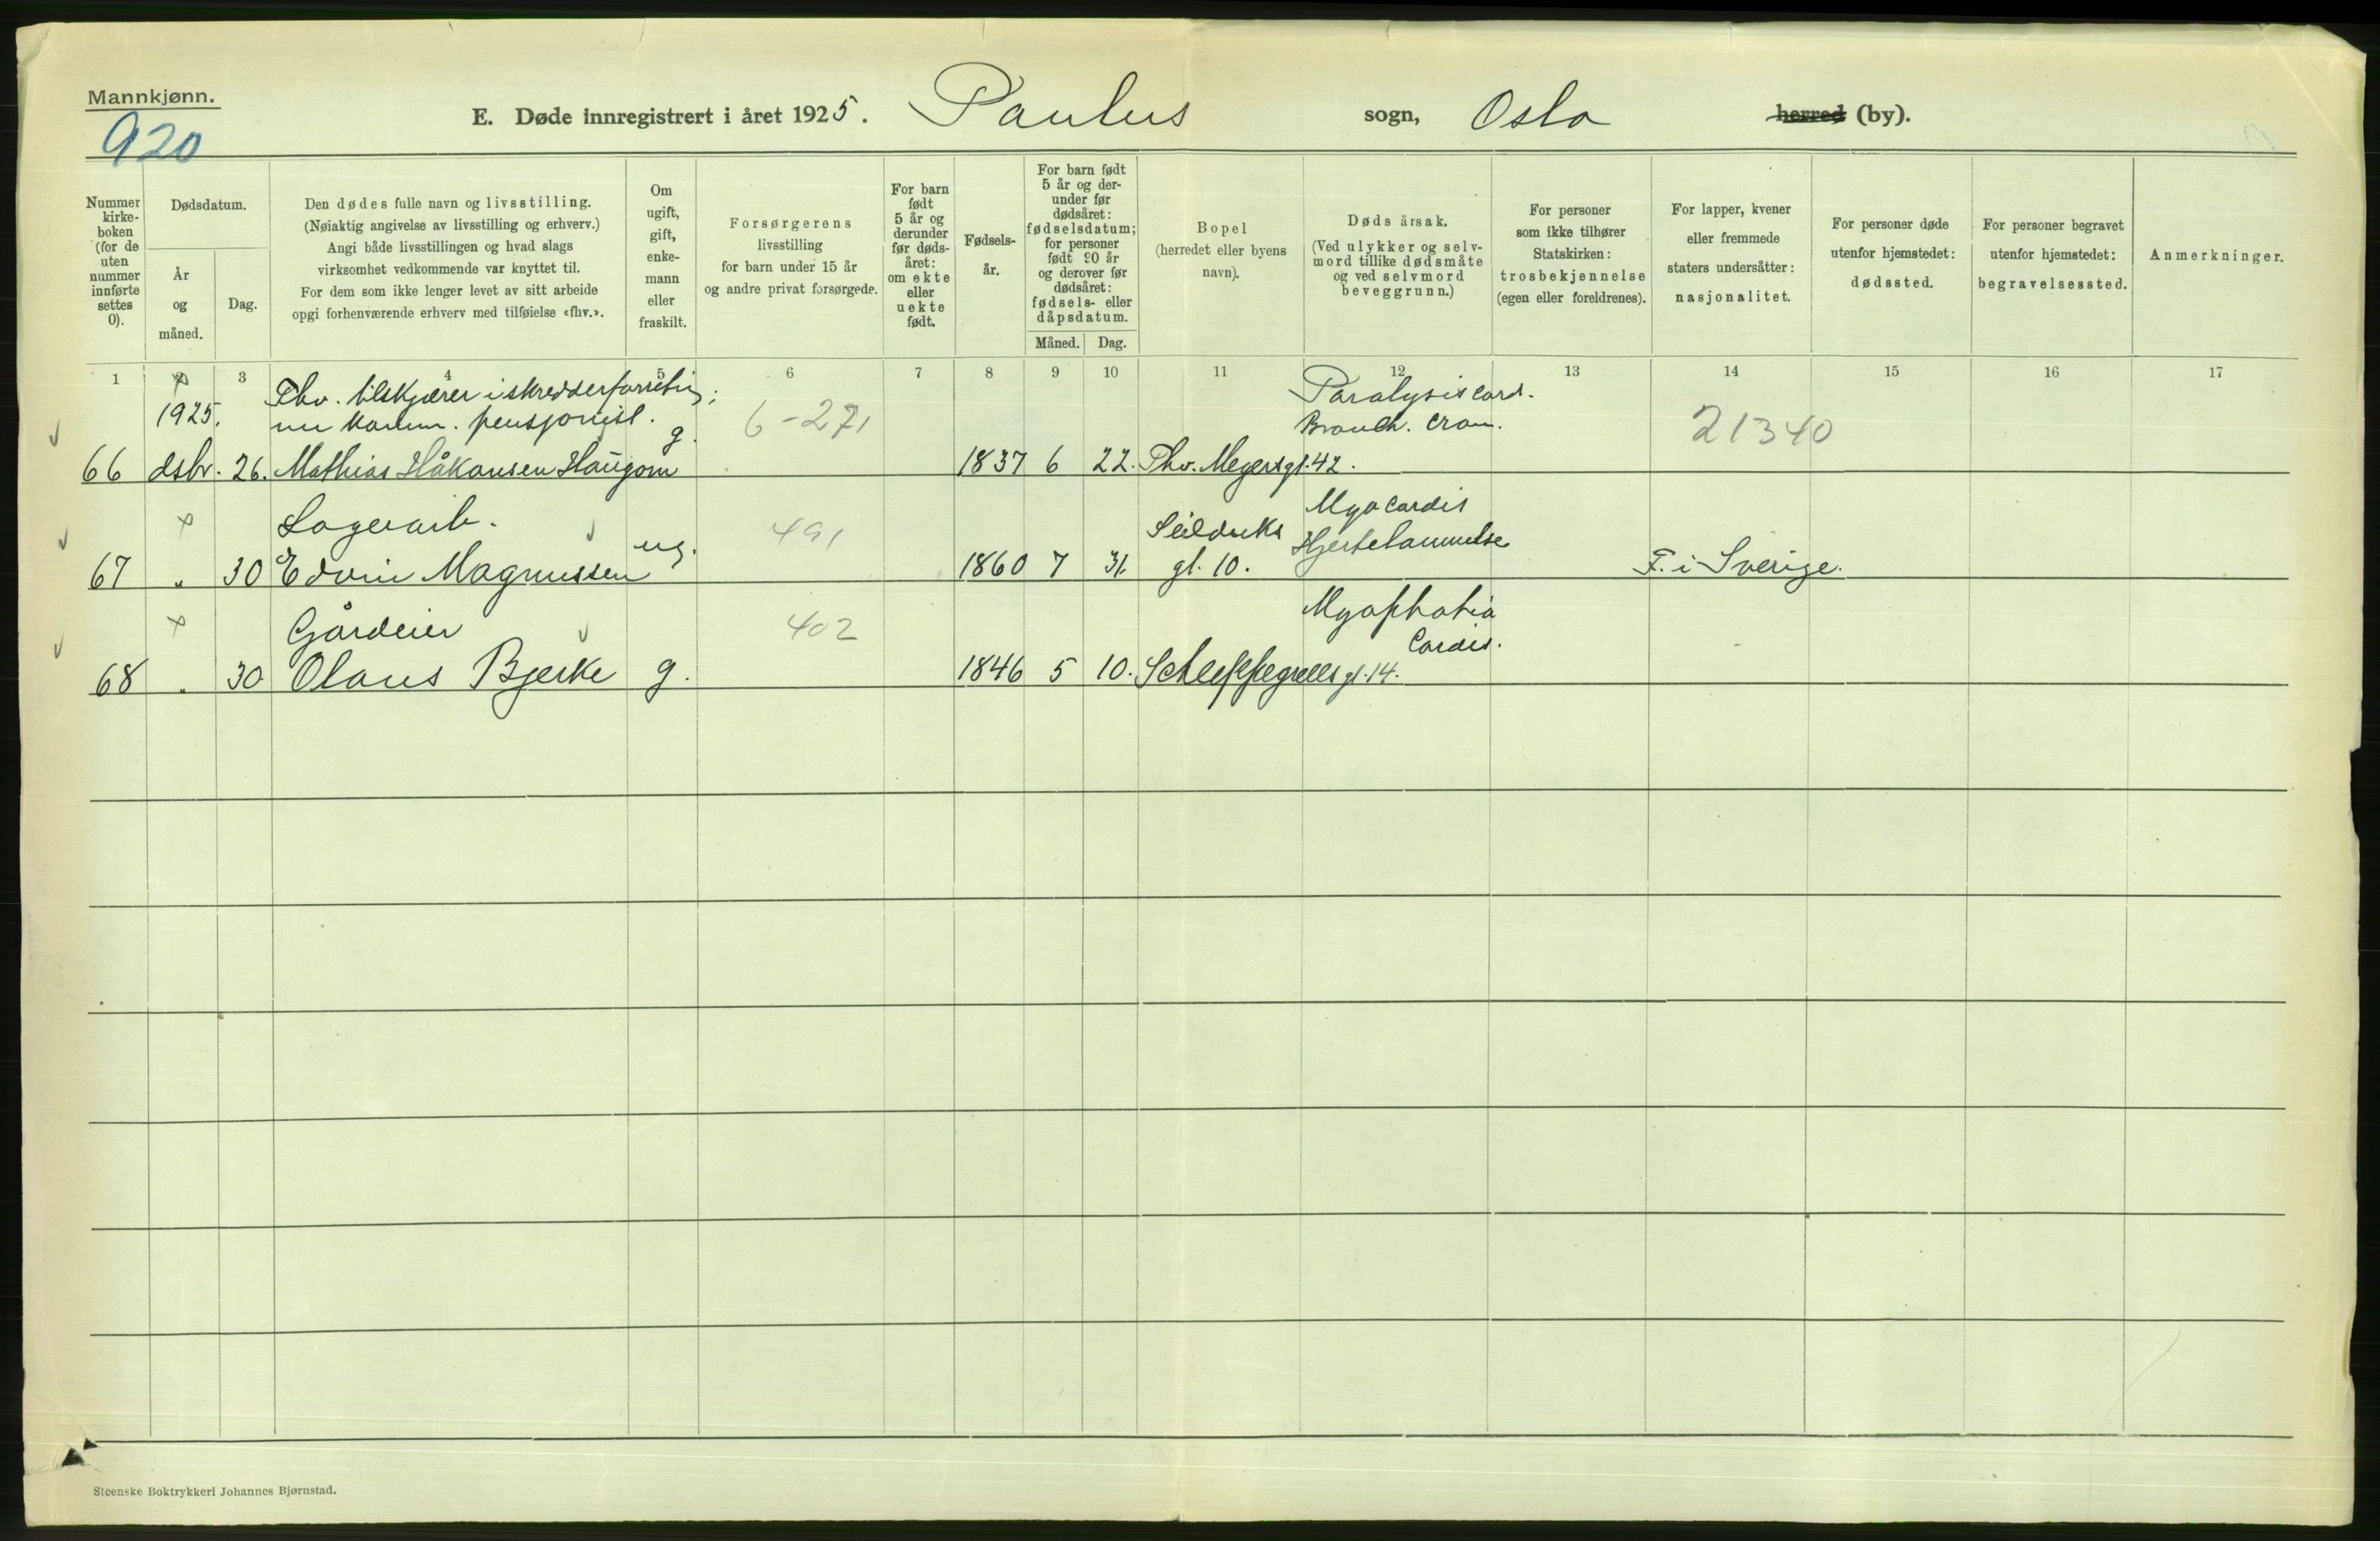 Mannkjønn.
920
E. Døde innregistrert i året 1925. Paulus sogn, Oslo herred (by).
Nummer kirke-boken (for de uten nummer innførte settes 0).
Dødsdatum.
År og måned.
Dag.
Den dødes fulle navn og livsstilling.
(Nøiaktig angivelse av livsstilling og erhverv.)
Angi både livsstillingen og hvad slags
virksomhet vedkommende var knyttet til.
For dem som ikke lenger levet av sitt arbeide
opgi forhenværende erhverv med tilføielse «fhv.».
Om ugift, gift, enke-mann eller fraskilt.
Forsørgerens
livsstilling
for barn under 15 år
og andre privat forsørgede.
For barn født 5 år og derunder før døds-året: om ekte eller uekte født.
Fødsels-år.
For barn født 5 år og der-under før dødsåret: fødselsdatum; for personer født 90 år og derover før dødsåret: fødsels- eller dåpsdatum.
Måned.
Dag.
Bopel
(herredet eller byens
navn).
Dødsårsak.
(Ved ulykker og selv-
mord tillike dødsmåte
og ved selvmord
beveggrunn.)
For personer
som ikke tilhører
Statskirken:
trosbekjennelse
(egen eller foreldrenes).
For lapper, kvener
eller fremmede
staters undersåtter:
nasjonalitet.
For personer døde
utenfor hjemstedet:
dødssted.
For personer begravet
utenfor hjemstedet:
begravelsessted.
Anmerkninger.
1 2 3 4 5 6 7 8 9 10 11 12 13 14 15 16 17
Fhv. tilskjærer i skredderforretn;
1925. nu komm. pensjonist. g. 6-271 Paralysis Card. Bronch. cron. 21340
66 dsbr. 26. Mathias Håkonsen Haugom 1837 6 22. Thv. Meyersgt. 42.
Lagerarb. ug. 491 Seilduks Myocardit Hjertelammelse
67 " 30 Edvin Magnussen 1860 7 31. gt. 10. F. i Sverige.
Gårdeier 402 Cardis.
68 " 30 Olaus Bjerke g. 1846 5 10. Schleppegrells gt. 14.
Steenske Boktrykkeri Johannes Bjørnstad.